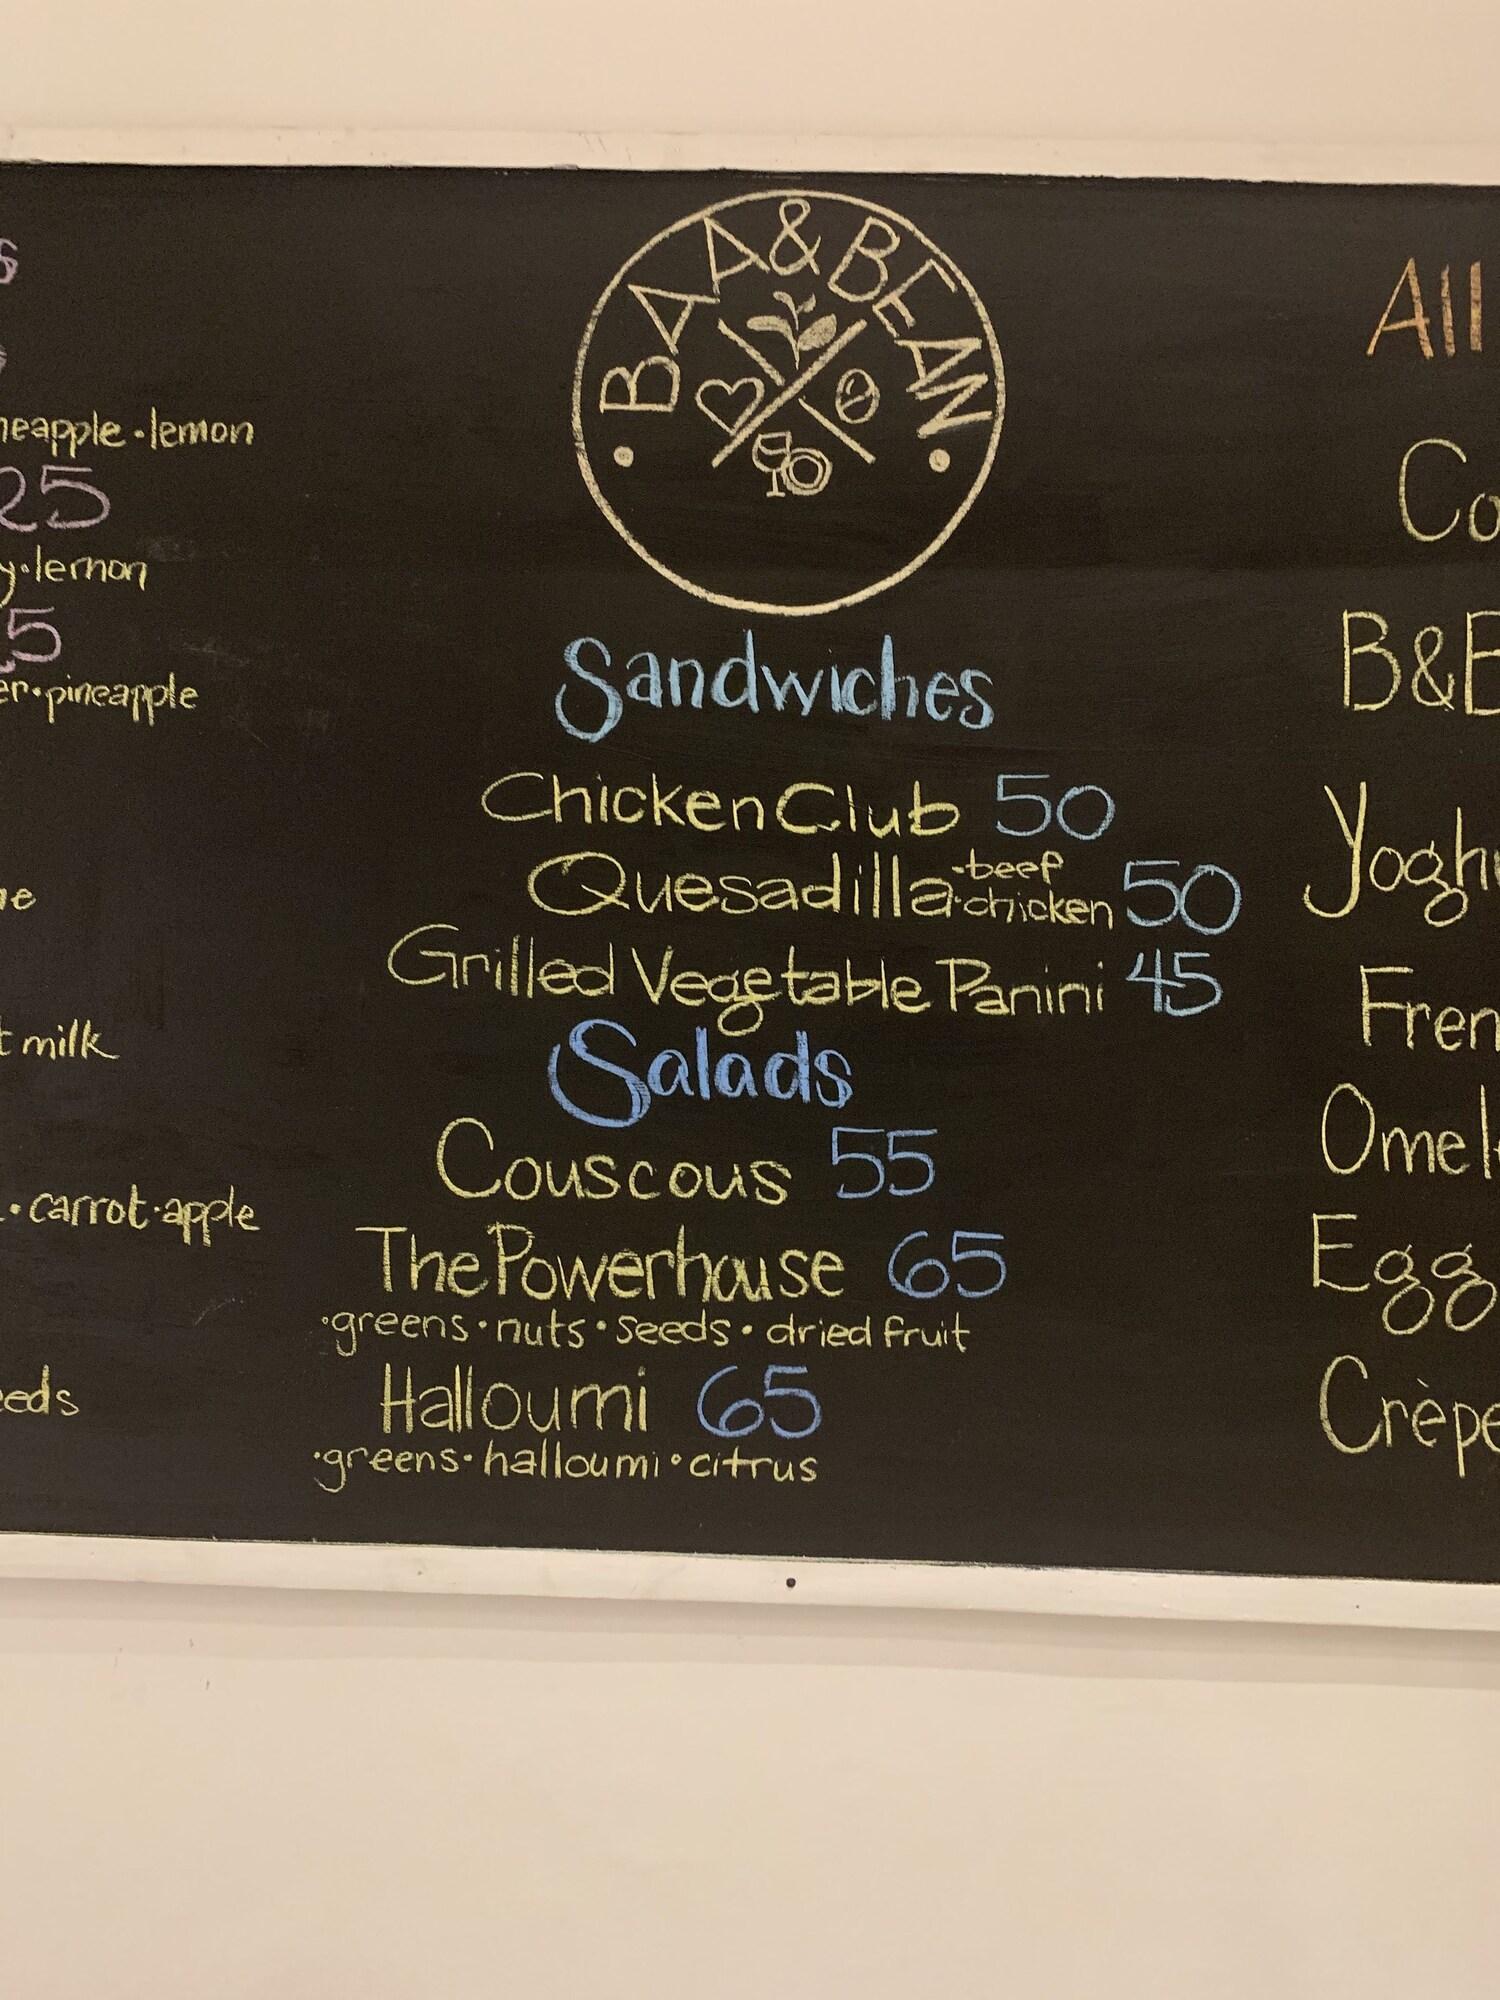 neapple • lemon
25
y • lemon
5
er • pineapple
t milk
• carrot • apple
BAA & BEAN
Sandwiches
Chicken Club 50
Quesadilla •beef •chicken 50
Grilled Vegetable Panini 45
Salads
Couscous 55
The Powerhouse 65
•greens • nuts • seeds • dried fruit
Halloumi 65
•greens • halloumi • citrus
All
Co
B&B
Yogh
Fren
Omel
Egg
Crèpe